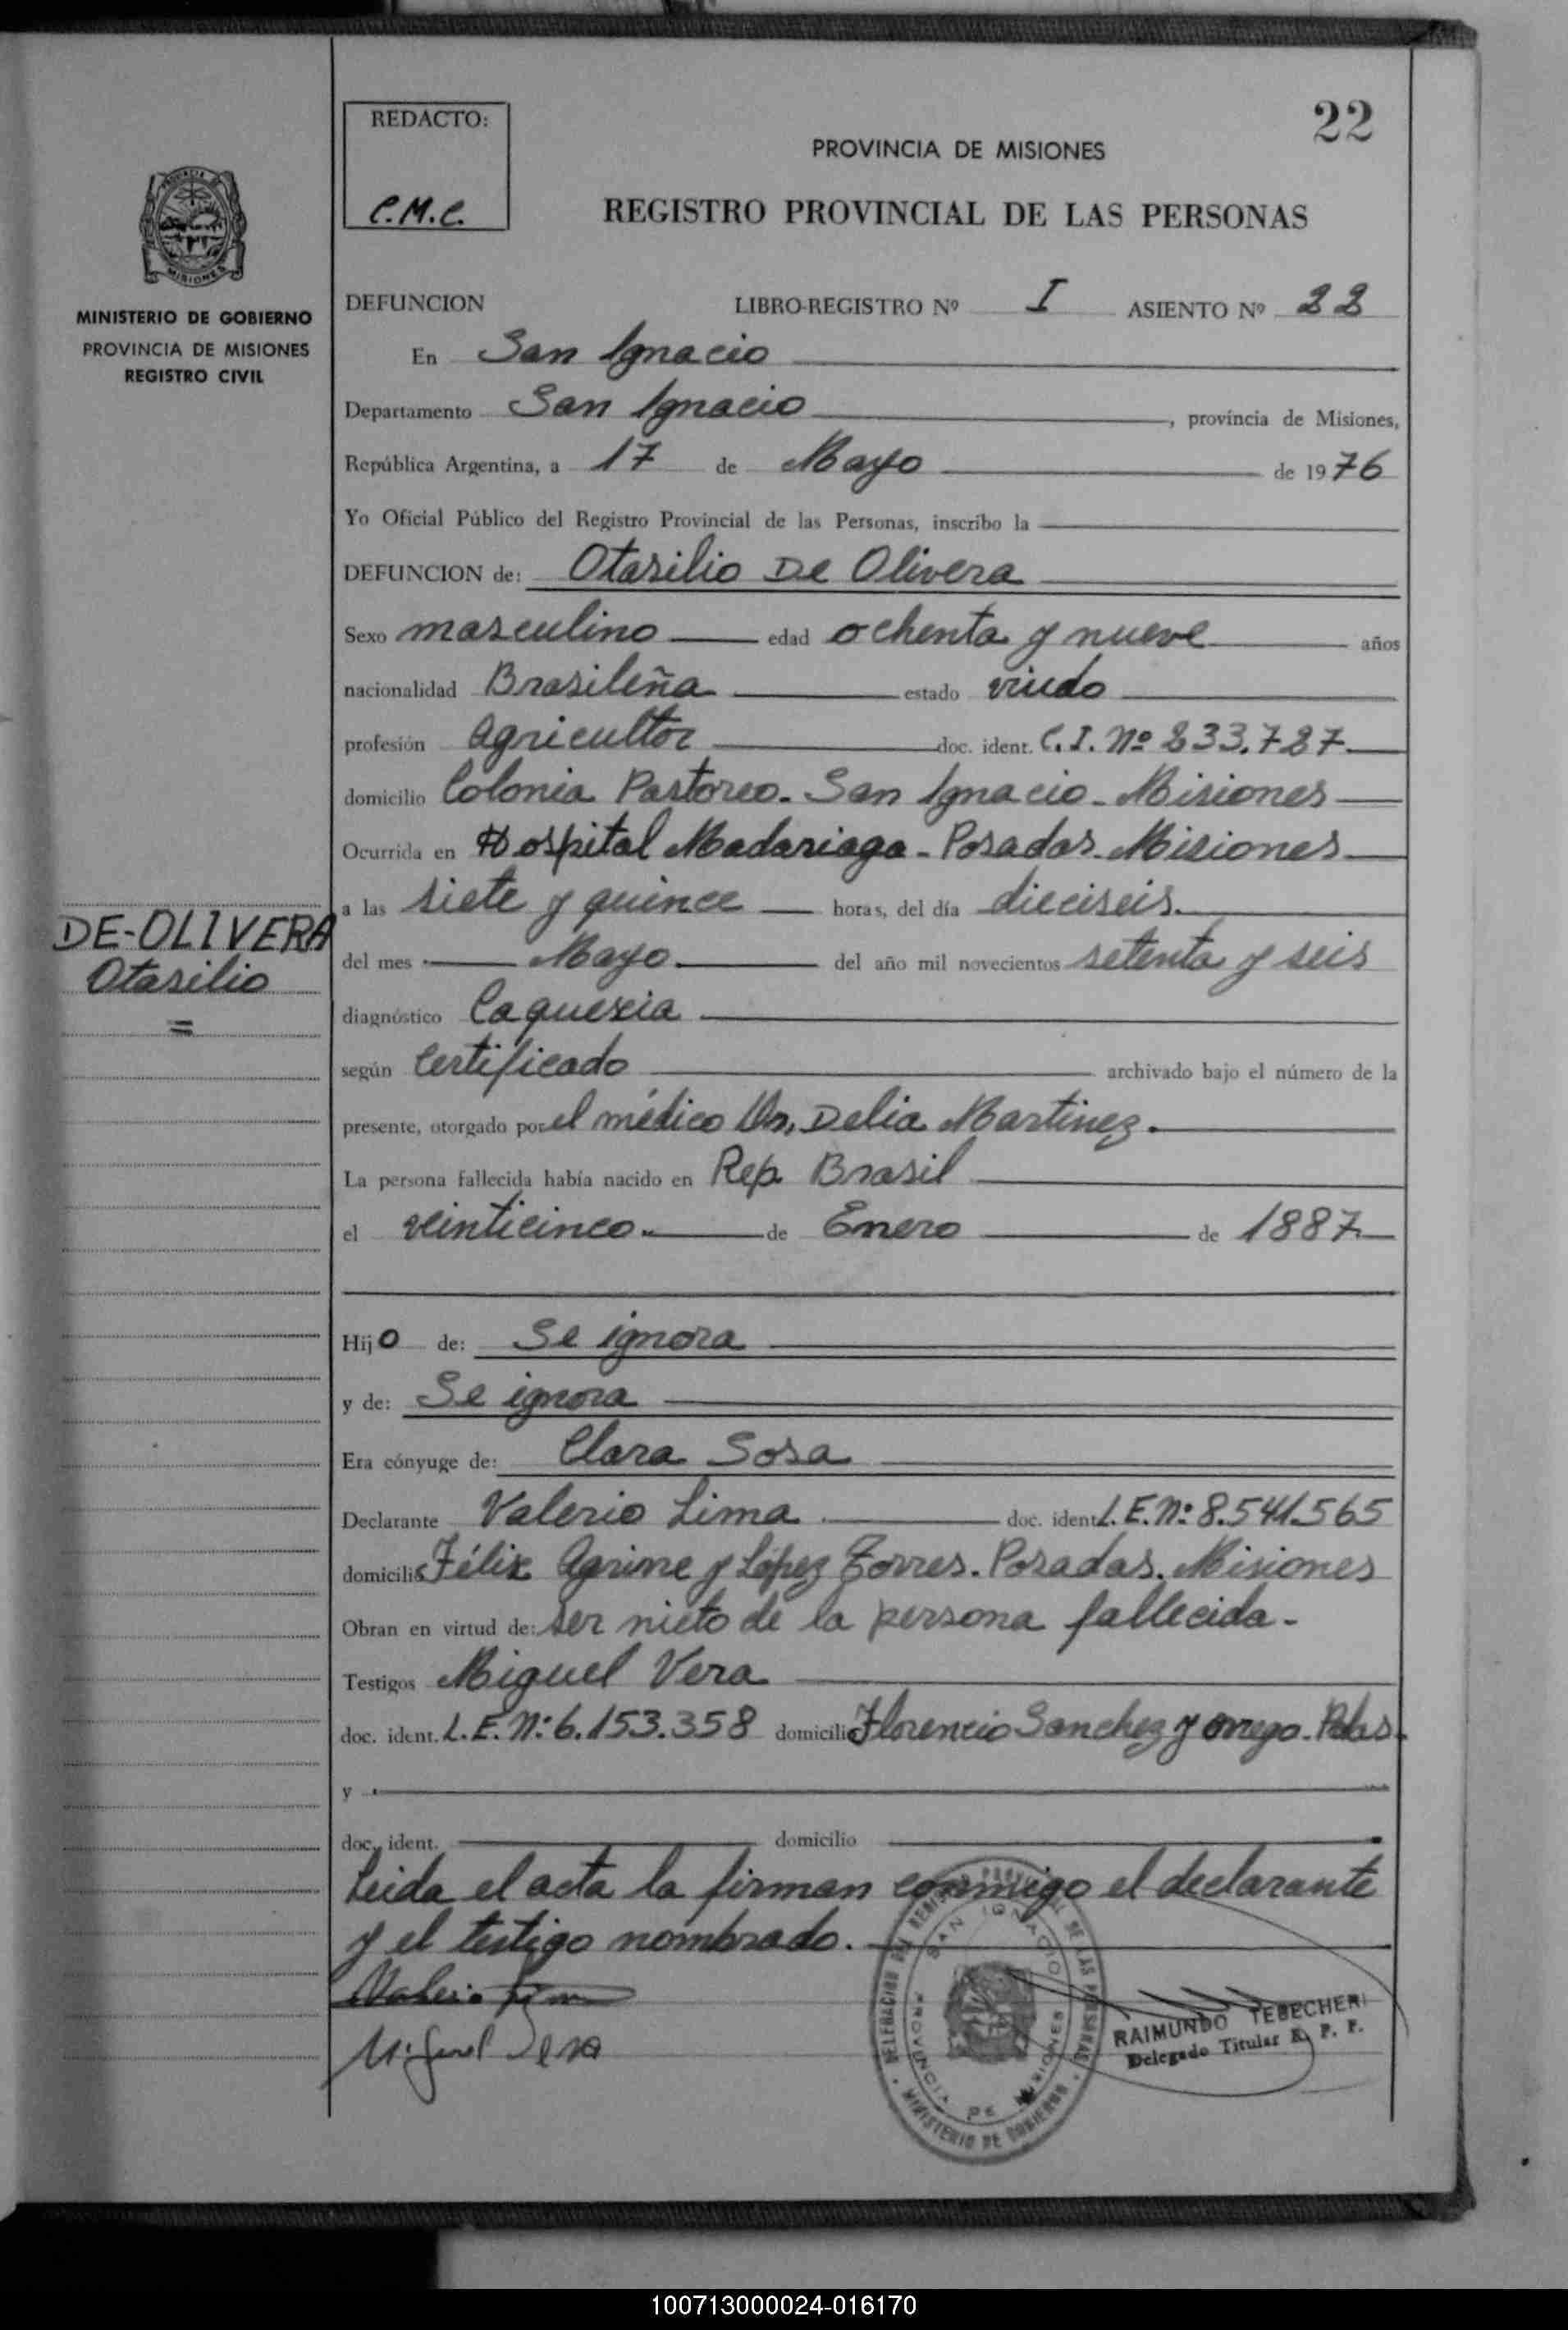 22
REDACTO:
C.M.C.
PROVINCIA DE MISIONES
REGISTRO PROVINCIAL DE LAS PERSONAS
MINISTERIO DE GOBIERNO
PROVINCIA DE MISIONES
REGISTRO CIVIL
DEFUNCION LIBRO-REGISTRO Nº I ASIENTO Nº 22
En San Ignacio
Departamento San Ignacio, provincia de Misiones,
República Argentina, a 17 de Mayo de 1976
Yo Oficial Público del Registro Provincial de las Personas, inscribo la
DEFUNCION de: Otasilio De Olivera
Sexo masculino edad ochenta y nueve años
nacionalidad Brasileña estado viudo
profesión Agricultor doc. ident. C.I. Nº 233.727
domicilio Colonia Pastoreo - San Ignacio - Misiones
Ocurrida en Hospital Madariaga - Posadas - Misiones
a las siete y quince horas, del día dieciseis.
DE-OLIVERA
Otasilio
=
del mes Mayo del año mil novecientos setenta y seis
diagnóstico Caquexia
según Certificado archivado bajo el número de la
presente, otorgado por el médico Dr. Delia Martinez.
La persona fallecida había nacido en Rep. Brasil
el veinticinco de Enero de 1887
Hijo de: Se ignora
y de: Se ignora
Era cónyuge de: Clara Sosa
Declarante Valerio Lima doc. ident. L.E.Nº: 8.541.565
domicilio Félix y López Torres. Posadas. Misiones
Obran en virtud de: ser nieto de la persona fallecida -
Testigos Miguel Vera
doc. ident. L.E.Nº: 6.153.358 domicilio Florencio Sanchez y Orrego - Pdas.
y
doc. ident. domicilio
Leida el acta la firman conmigo el declarante
y el testigo nombrado.
Valerio Lima
Miguel Vera
DELEGACION DEL REGISTRO PROVINCIAL DE LAS PERSONAS
SAN IGNACIO
PROVINCIA DE MISIONES
MINISTERIO DE GOBIERNO
RAIMUNDO TEBECHERI
Delegado Titular R. P. P.
100713000024-016170